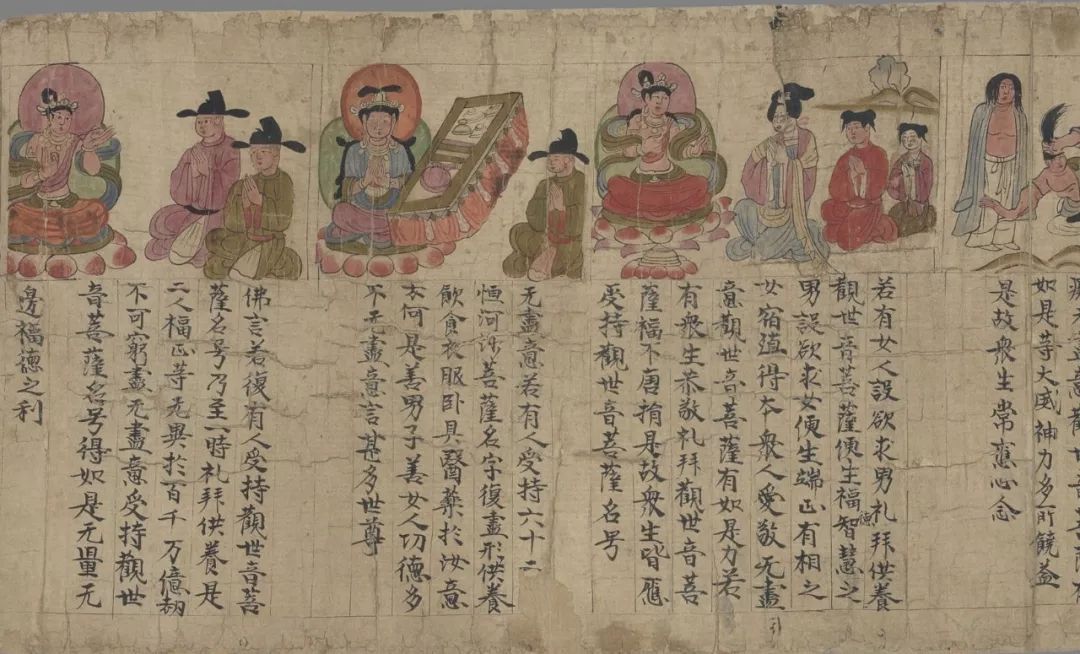 意觀世音菩薩有
如是等大威神力多所饒益
是故衆生常應心念
若有女人設欲求男礼拜供養
觀世音菩薩便生福德智慧之
男設欲求女便生端正有相之
女宿殖得本衆人愛敬无盡
意觀世音菩薩有如是力若
有衆生恭敬礼拜觀世音菩
薩福不唐捐是故衆生皆應
受持觀世音菩薩名号
无盡意若有人受持六十二
恒河沙菩薩名字復盡形供養
飲食衣服卧具醫藥於汝意
云何是善男子善女人功德多
不无盡意言甚多世尊
佛言若復有人受持觀世音菩
薩名号乃至一時礼拜供養是
二人福正等无異於百千万億劫
不可窮盡无盡意受持觀世
音菩薩名号得如是无量无
邊福德之利